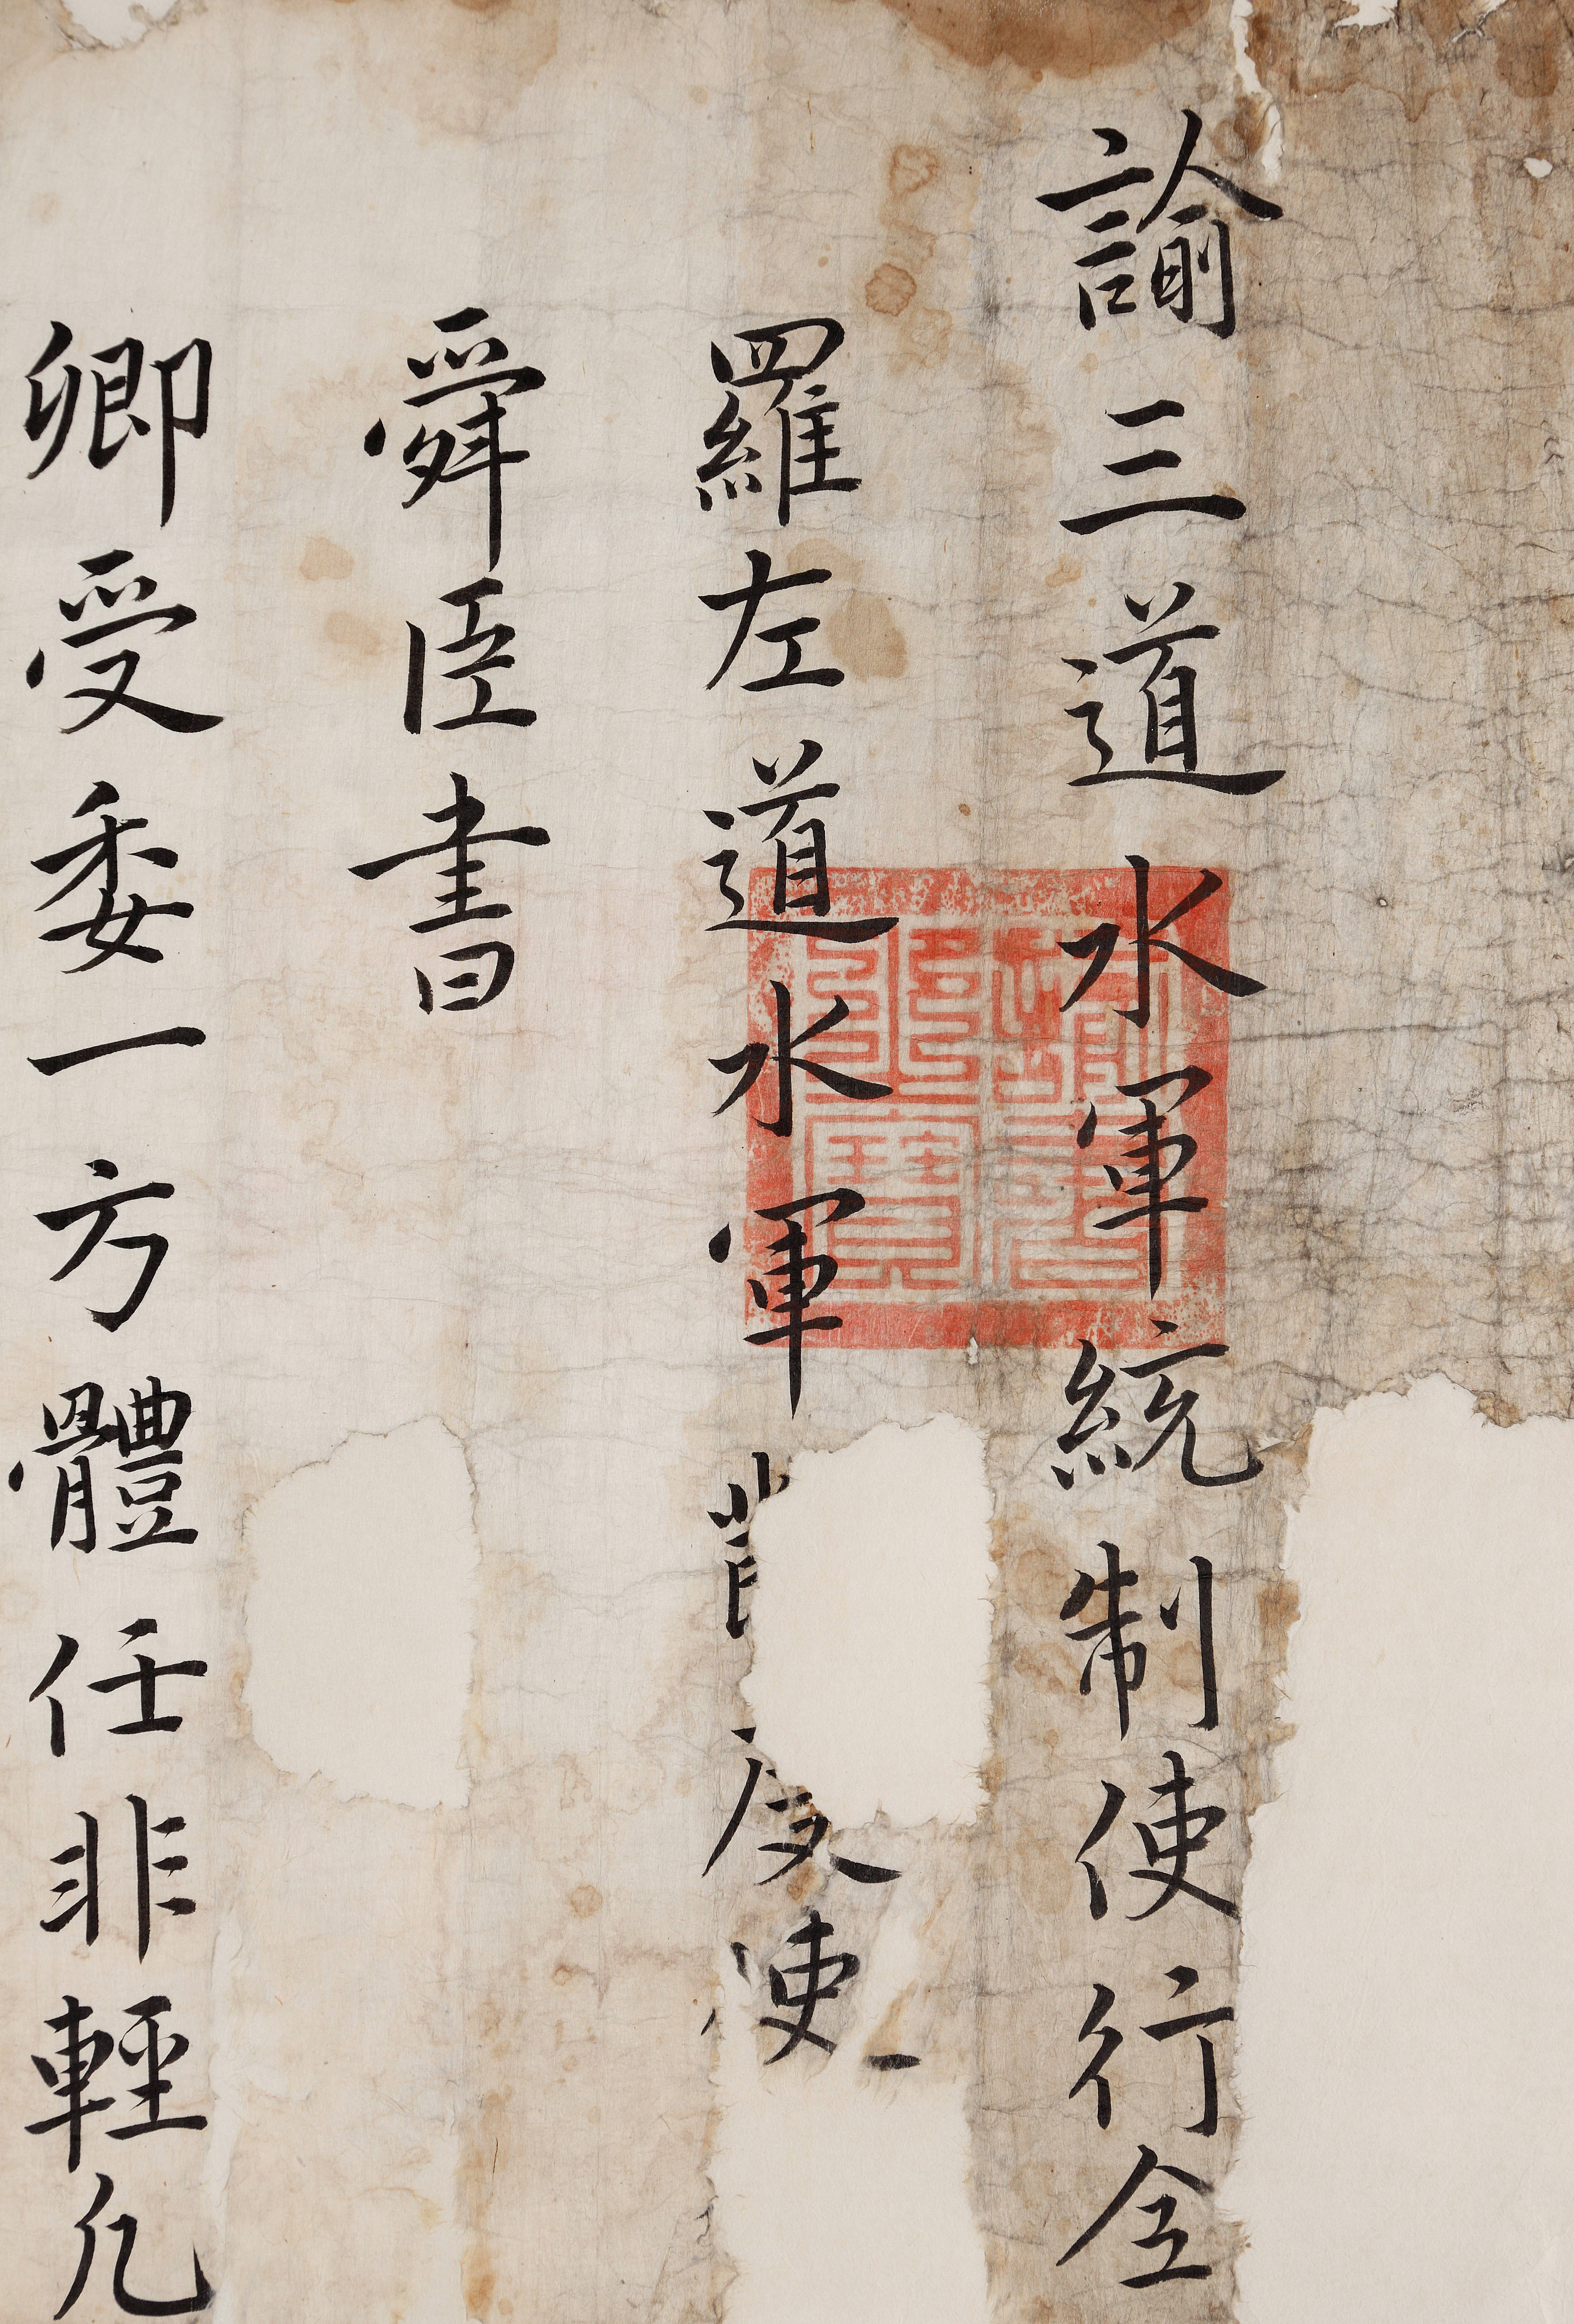 諭三道水軍統制使行全
羅左道水軍節度使
舜臣書
卿受委一方體任非輕凡